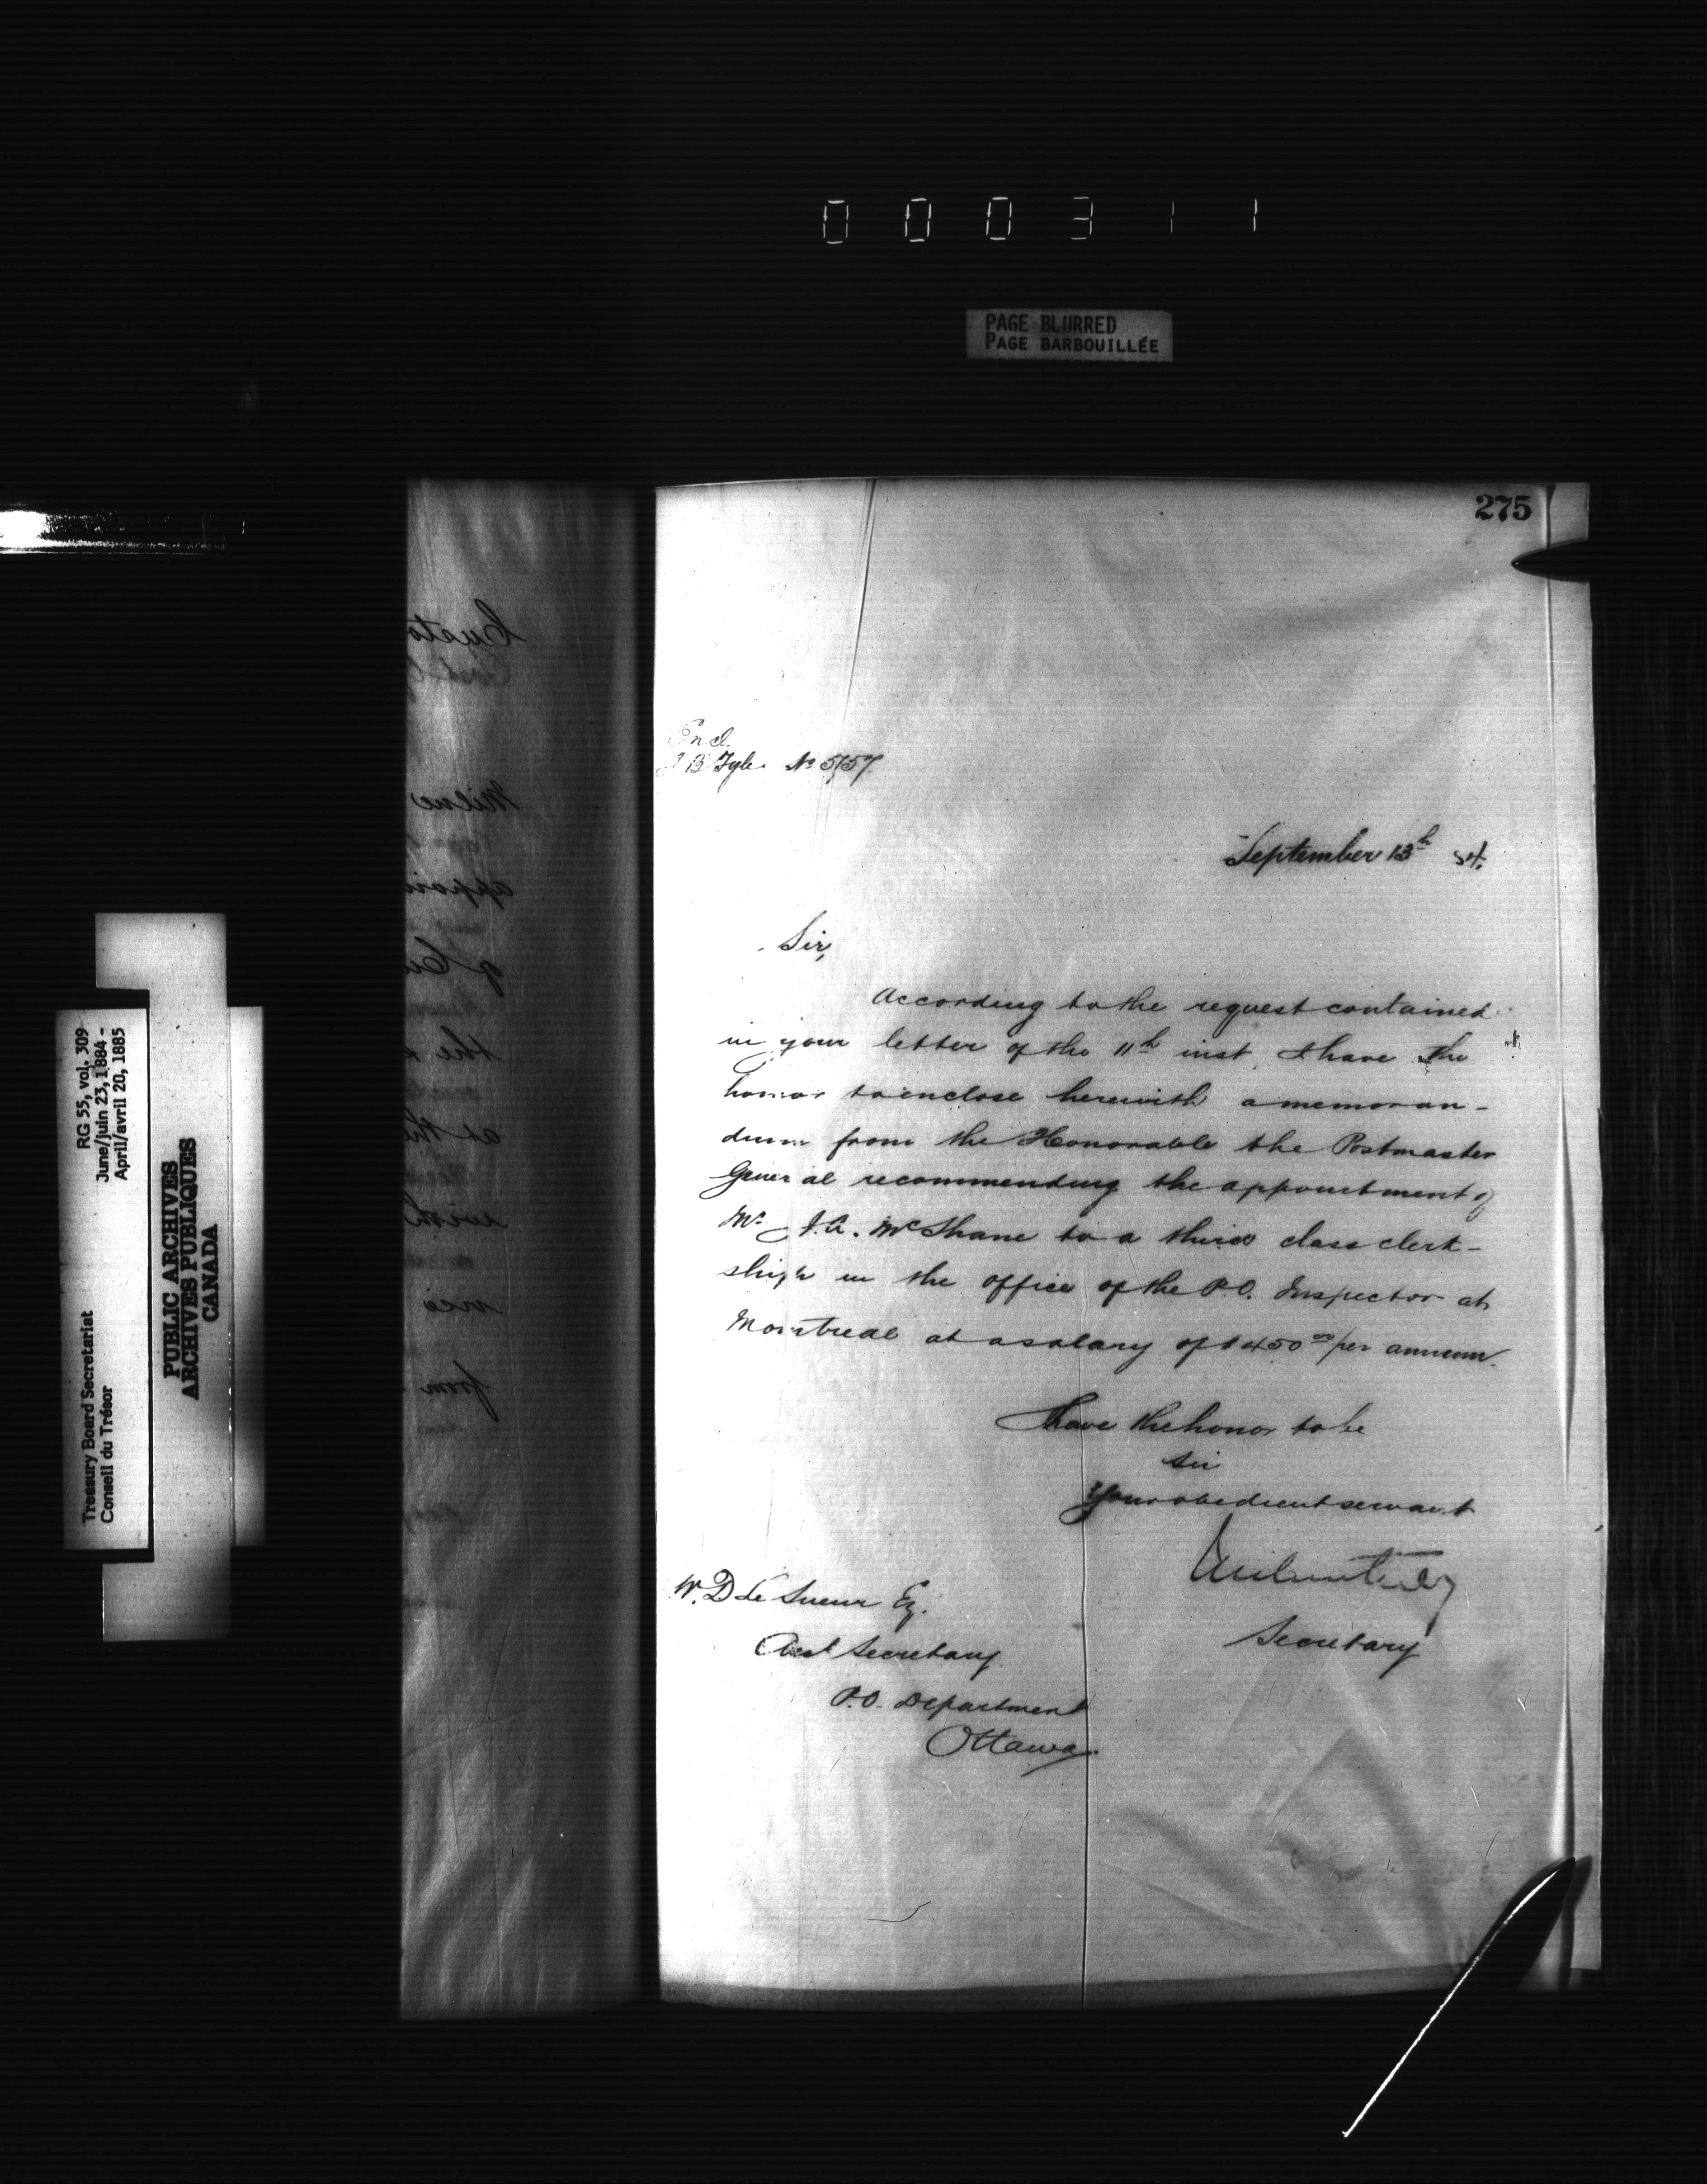 000311
PAGE BLURRED
PAGE BARBOUILLÉE
275
RG 55, vol. 309
June/juin 23, 1884 -
April/avril 20, 1885
Treasury Board Secretariat
Conseil du Trésor
PUBLIC ARCHIVES
ARCHIVES PUBLIQUES
CANADA
Encl.
T B Fyle No 5157
September 13th 84.
Sir,
According to the request contained
in your letter of the 11th inst I have the
honor to enclose herewith a memoran-
dum from the Honorable the Postmaster
General recommending the appointment of
Mr J.A. McShane to a third class clerk-
ship in the office of the P.O. Inspector at
Montreal at a salary of $450 00/per annum.
I have the honor to be
Sir
Your obedient servant
Secretary
W. D Le Sueur Eq.
Asst Secretary
P.O. Department
Ottawa